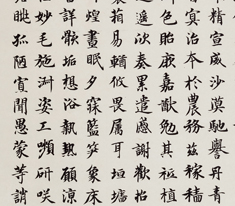 精宣威沙漠馳譽丹青
冥治本於農務茲稼穡
色貽厥嘉猷勉其祗植
遙欣奏累遣慼謝歡招
箱易輶攸畏屬耳垣墻
煌晝眠夕寐藍笋象床
詳骸垢想浴執熱願涼
妙毛施淑姿工嚬妍咲
眺孤陋寡聞愚蒙等誚